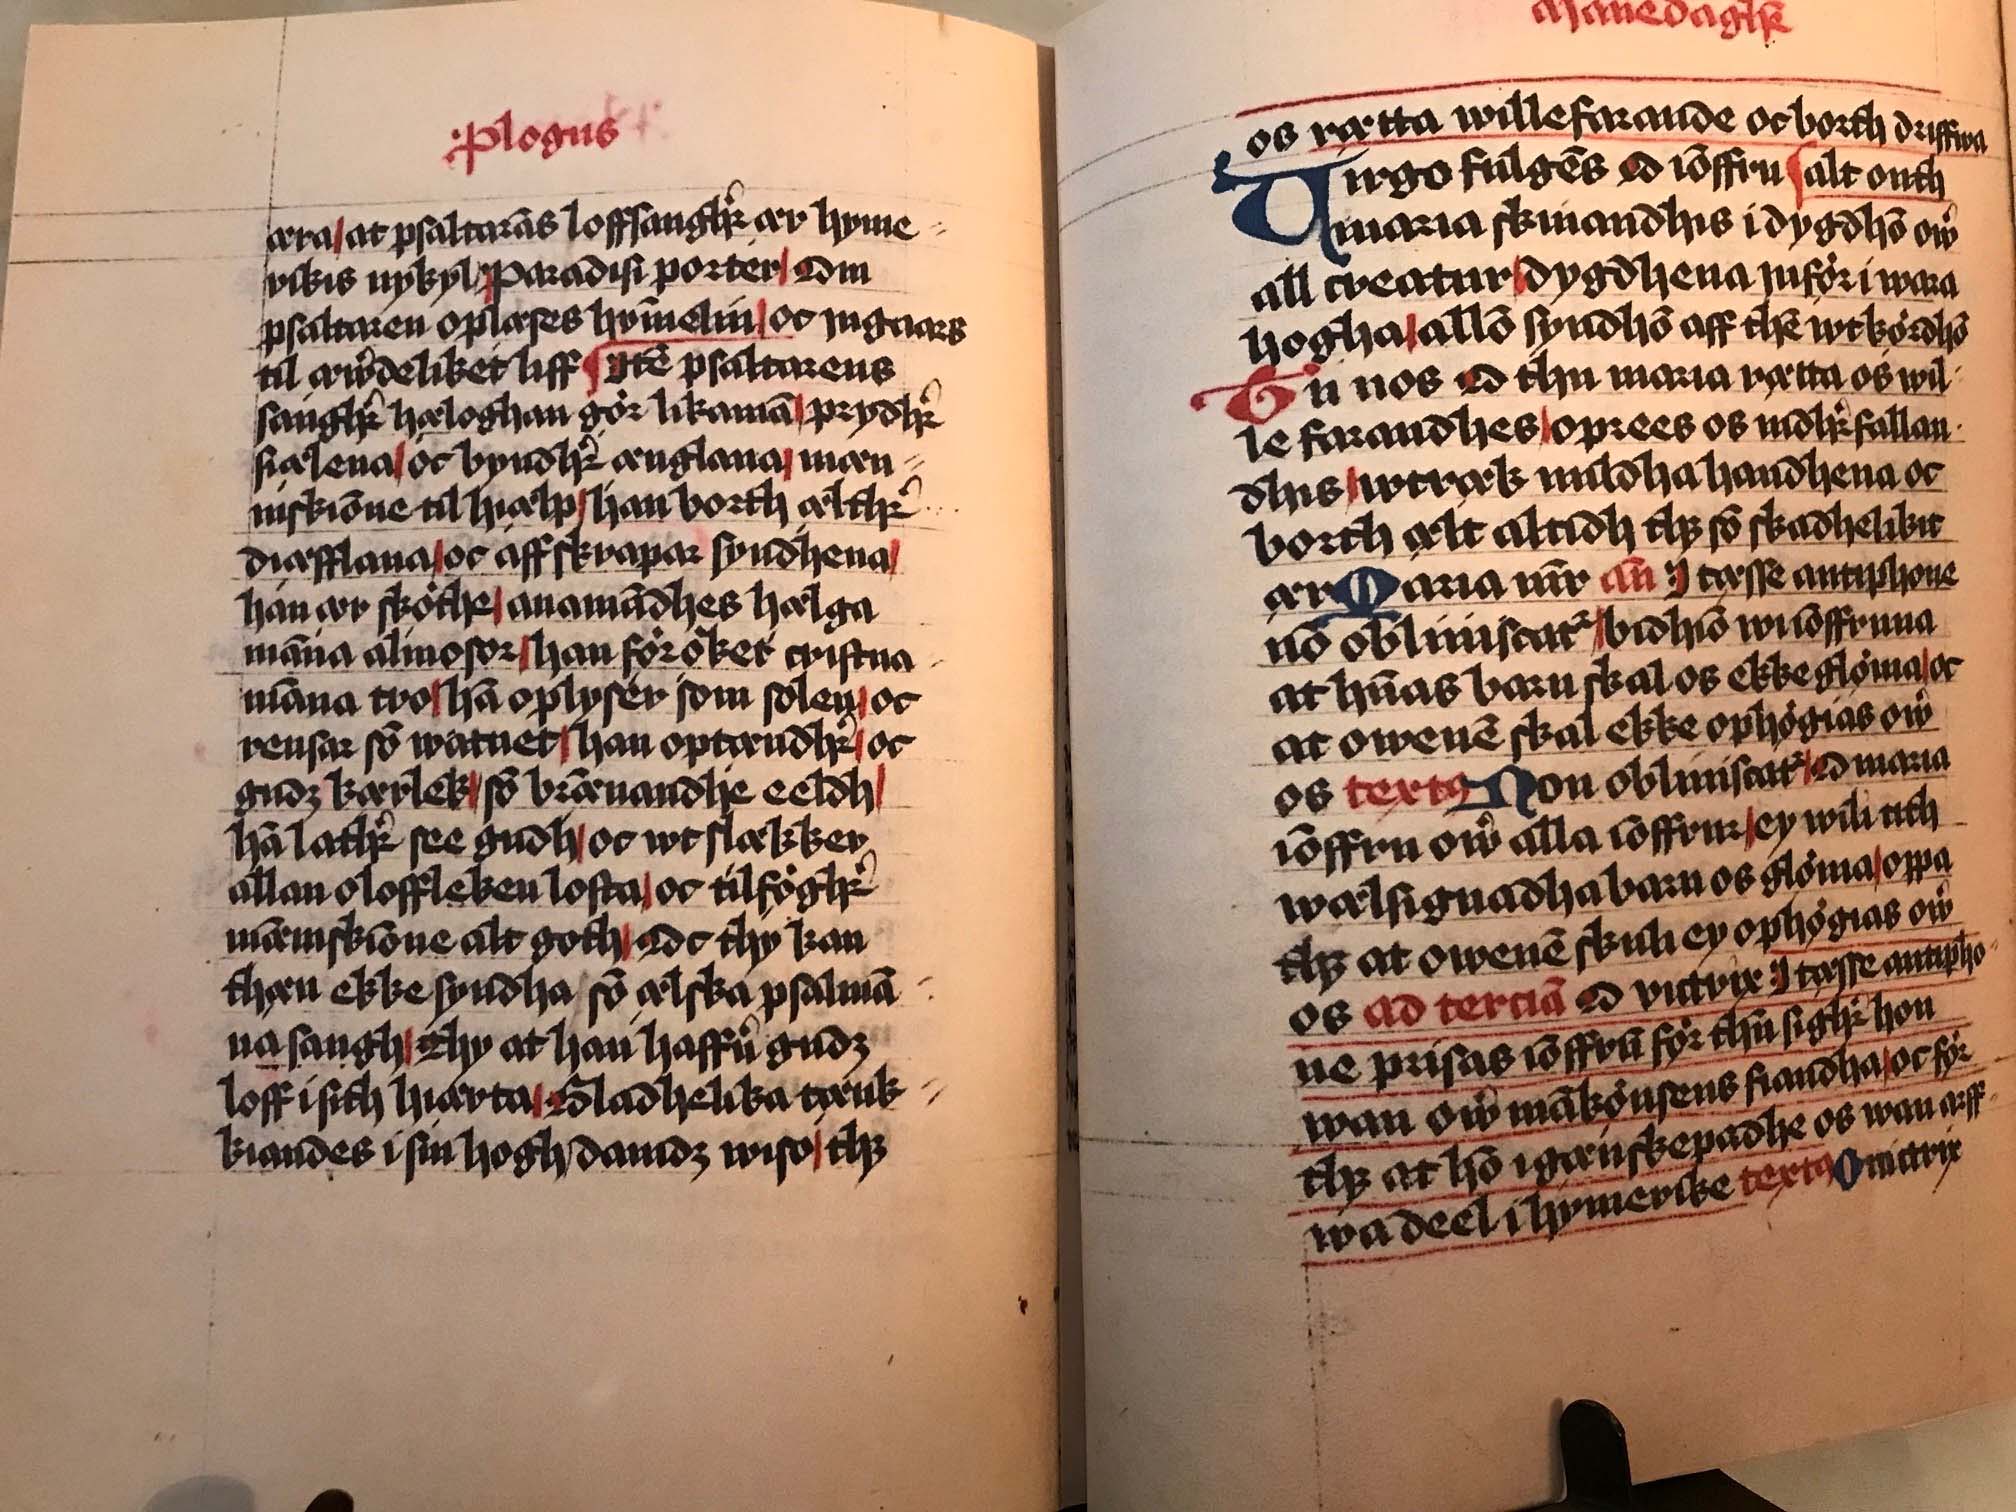 Plogus
æra at psaltarās loffsanghr̄ ær hyme
rikis nykyl Paradisi porter Om
psaltaren oplæses hym̄elin oc ingaars
til æwᷤdeliket liff Itē psaltarens
sanghr̄ hæloghan gør likamā prydhr̄
siælena oc byudhr̄ ænglana mæn
niskiōne til hiælp han borth ælthr̄
diæfflana oc affskrapar syndhena
han ær skøthe anamādhes hælga
māna almosor han førøker cristna
māna tro hā oplyser som solen oc
rensar sō watnet han optændhr̄ oc
gudz kærlek sō brænandhe eeldh
hā lathr̄ see gudh oc wt slækker
allan oloffleken losta oc tilføghr̄
mæniskiōne alt goth Oc thy kan
thæn ekke syndha sō ælska psalmā
na sangh thy at han haffu̅ gudz
loff i sith hiærta Gladhelika tænk
kiandes i sin hogh dauidz wiso thꝫ
Manedaglik
os rætta willefarande oc borth driffwa
Uirgo fulgēs O iōffru salt onth
maria skinandhis i dygdhō ow̄
all creatur dygdhena inføri wara
hogha allō syndhō aff thē wtkørdhō
Tu nos O thu maria rætta os wil
le farandhes oprees os nidhr̄fallan
dhis wtræk mildha handhena oc
borth ælt altidh thꝫ sō skadhelikit
ær Maria vir an̄ I tæsse antiphone
nō obliuiscatr bidhiō wi iōffruna
at hn̄nas barn skal os ekke gløma oc
at owenē skal ekke ophøgias ow̄
os textꝰ Non obliuiscatr O maria
iōffru ow̄ alla iōffrur ey wili tith
wælsignadha barn os gløma oppa
thꝫ at owenē skuli ey ophøgias ow̄
os ad terciā O victrix I tæsse antipho
ne prisas iōffrū før thn̄ sighr̄ hon
wan ow̄ mākønsens fiandha oc før
thꝫ at hō igænskepadhe os wan arff
wadeel i hymerike textꝰ O victrix